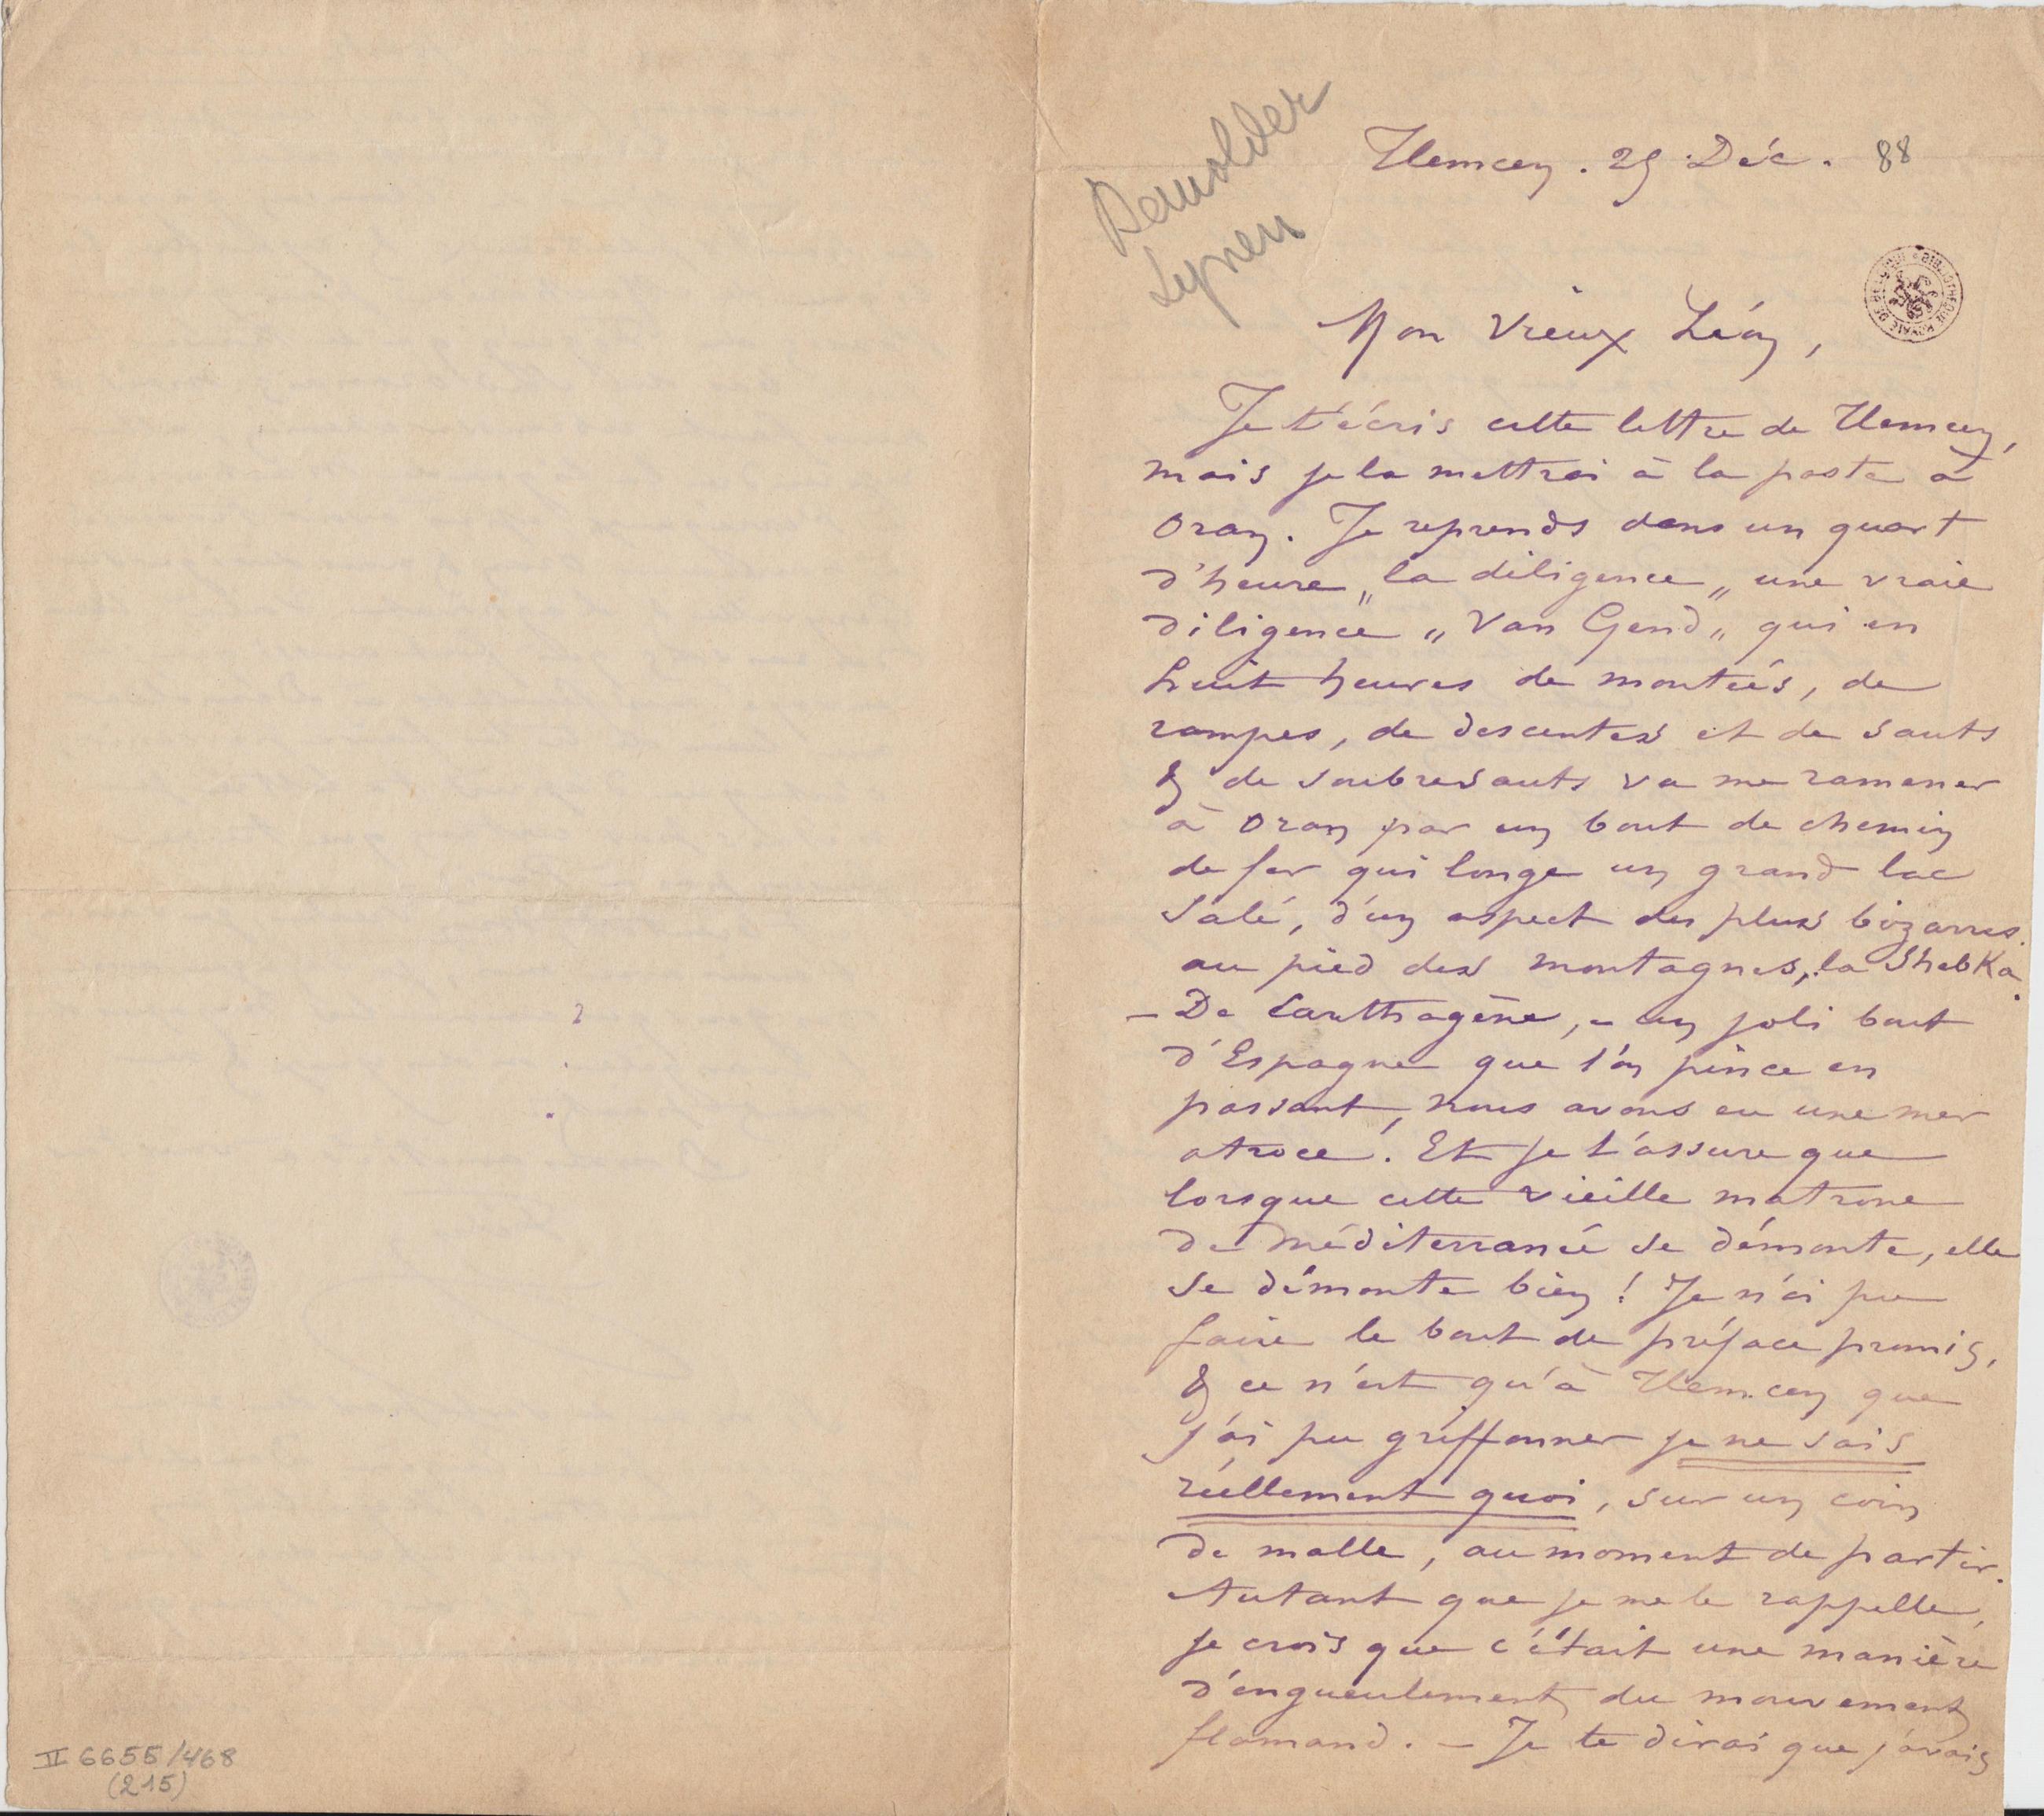 II 6655/468
(215)
Demolder
Lynen
Tlemcen. 29 Déc. 88
BIBLIOTHEQUE ROYALE DE BELGIQUE
Mon Vieux Léon,
Je t'écris cette lettre de Tlemcen,
mais je la mettrai à la poste à
Oran. Je reprends dans un quart
d'heure „la diligence„ une vraie
diligence „Van Gend„ qui en
huit heures de montées, de
rampes, de descentes et de sauts
& de soubresauts va me ramener
à Oran par un bout de chemin
de fer qui longe un grand lac
salé, d'un aspect des plus bizarres.
au pied des montagnes, la Shebka.
– De Carthagène, – un joli bout
d'Espagne que l'on pince en
passant, nous avons eu une mer
atroce. Et je t'assure que
lorsque cette vieille matrone
de Méditerranée se démonte, elle
se démonte bien ! Je n'ai pu
faire le bout de préface promis,
& ce n'est qu'à Tlemcen que
j'ai pu griffonner je ne sais
réellement quoi, sur un coin
de malle, au moment de partir.
Autant que je me le rappelle,
je crois que c'était une manière
d'engueulement du mouvement
flamand. – Je te dirai que j'avais